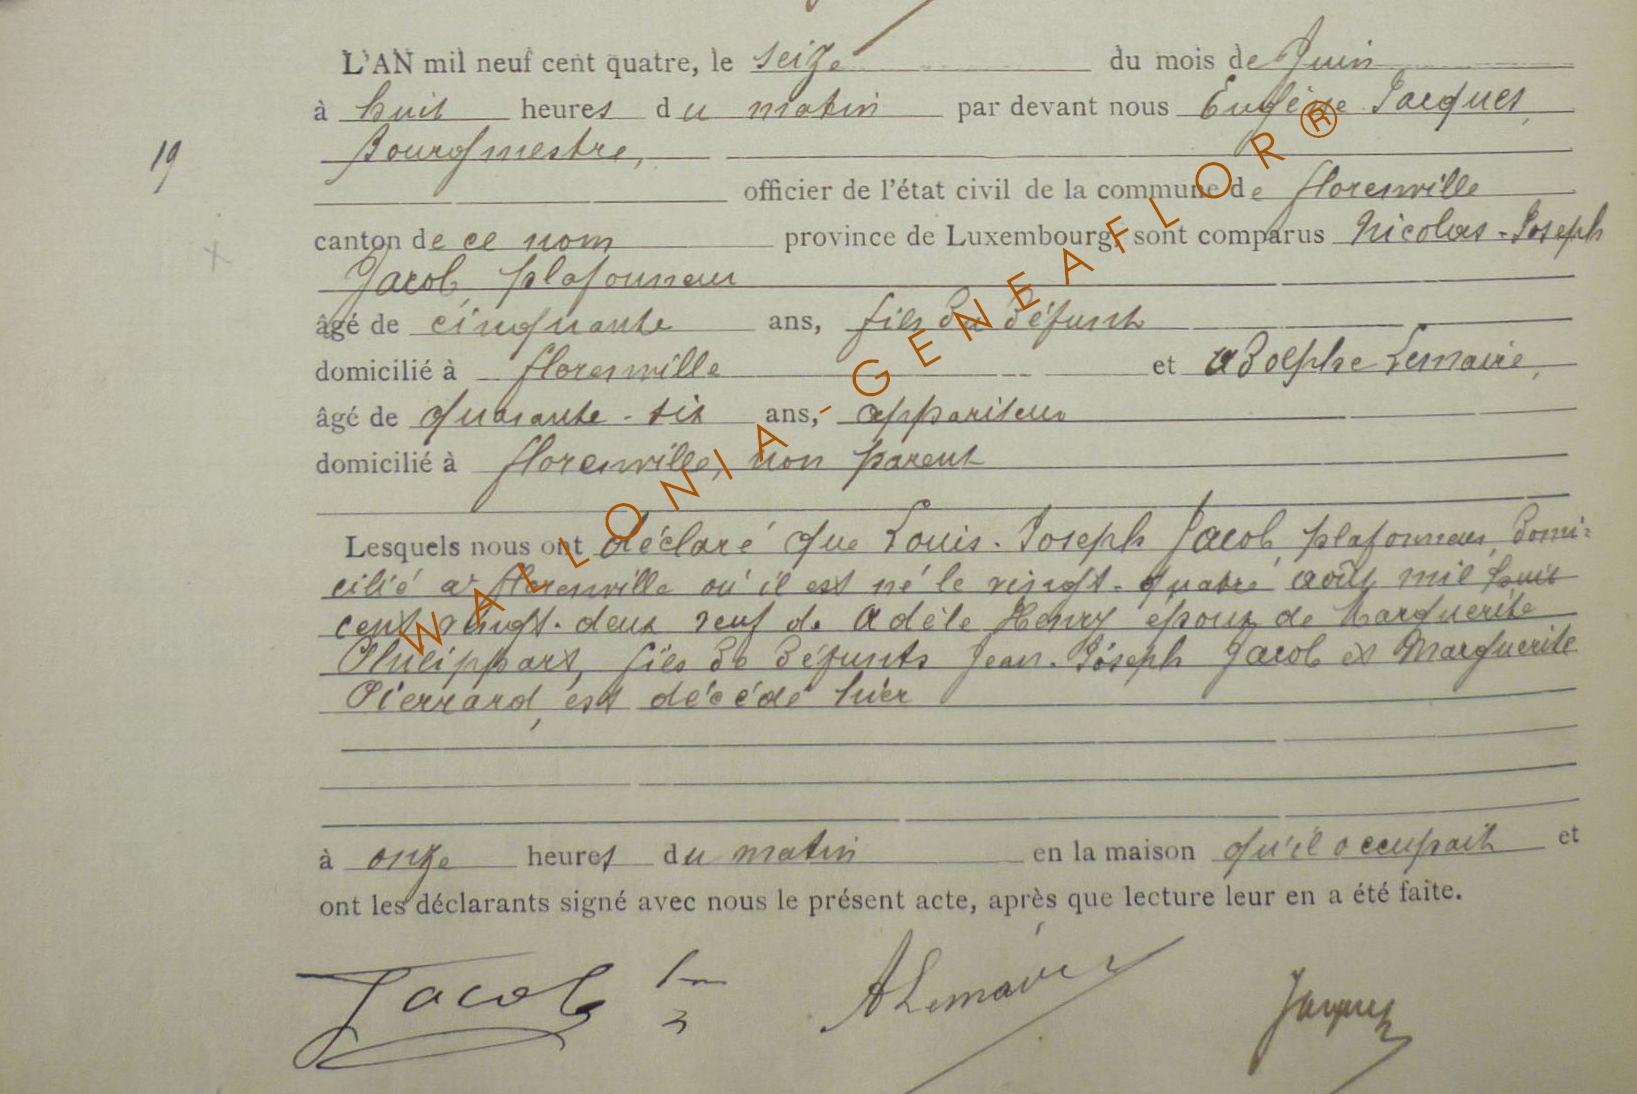 L'AN mil neuf cent quatre, le seize du mois de Juin
à huit heures du matin par devant nous Eugène Jacques,
Bourgmestre,
19
officier de l'état civil de la commune de florenville
canton de ce nom province de Luxembourg, sont comparus Nicolas-Joseph
Jacob, plafonneur
âgé de cinquante ans, fils du défunt
domicilié à florenville et Adolphe Lemaire,
âgé de quarante-six ans, appariteur
domicilié à florenville, non parent
Lesquels nous ont déclaré que Louis-Joseph Jacob, plafonneur, domi-
cilié à florenville où il est né le vingt-quatre août mil huit
cent vingt-deux veuf de Adèle Henry époux de Marguerite
Philippart, fils de défunts Jean-Joseph Jacob et Marguerite
Pierrard, est décédé hier
à onze heures du matin en la maison qu'il occupait et
ont les déclarants signé avec nous le présent acte, après que lecture leur en a été faite.
Jacob ALemaire Jacques
WALLONIA-GENEAFLOR®